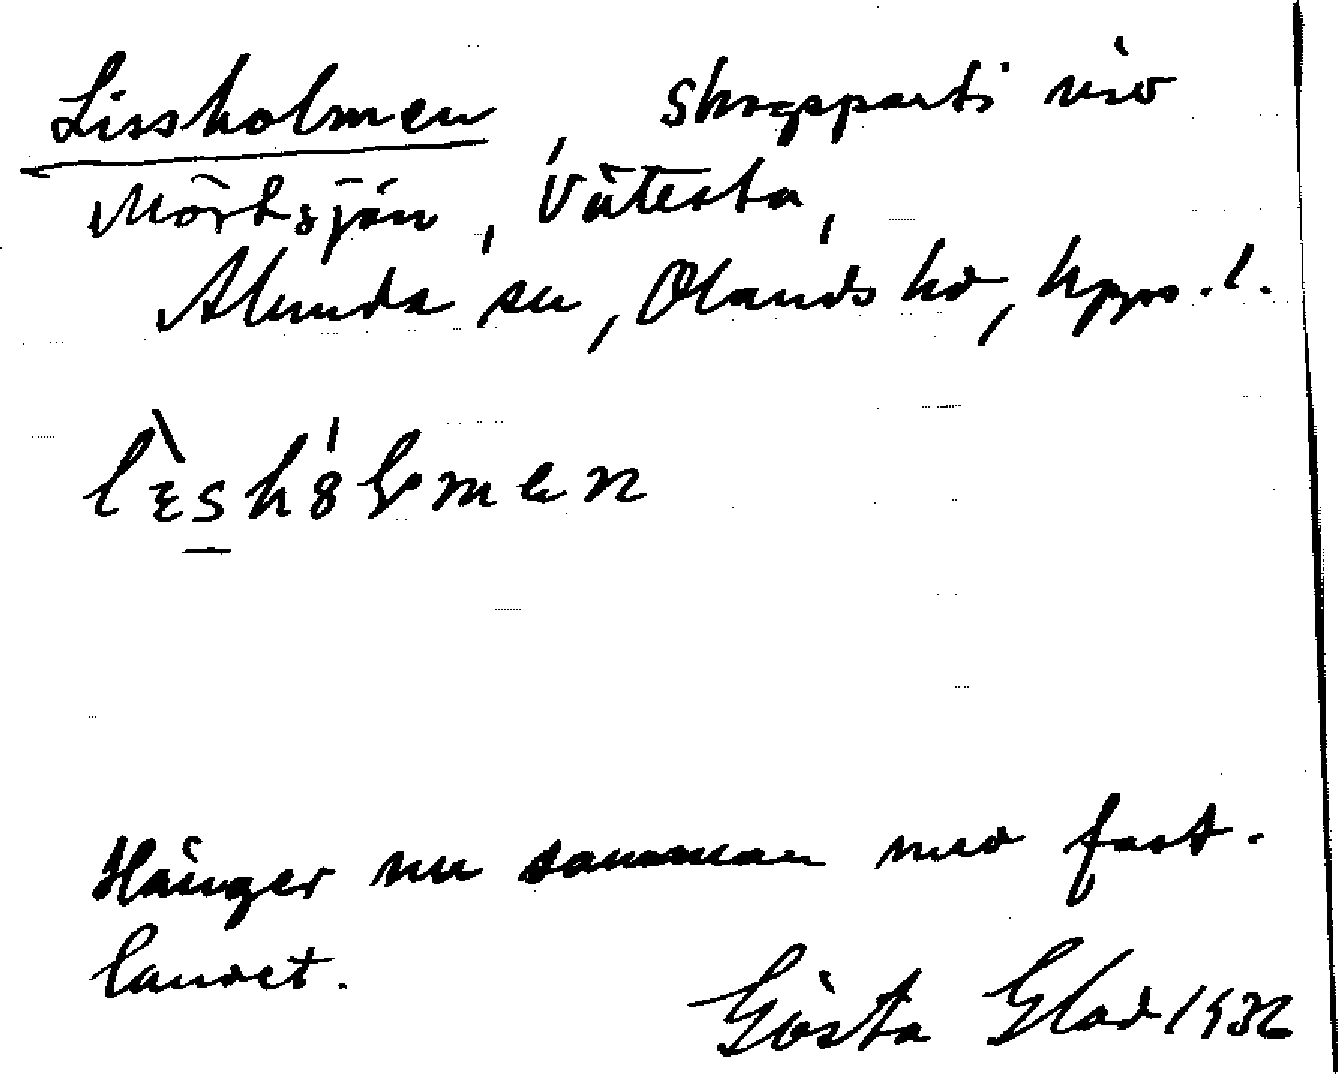 Lissholmen, Skogsparti vid
Mörksjön, Vätesta,
Alunda sn, Olands hd, Upps. l.
Hänger nu samman med fast-
landet.
Gösta Glad 1932